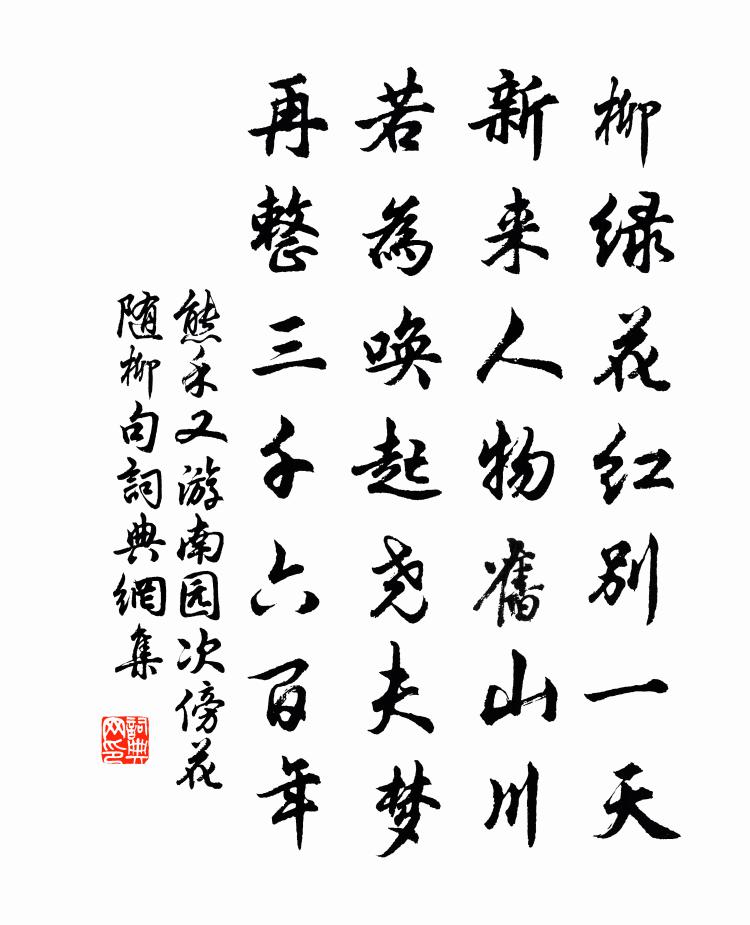 柳绿花红别一天
新来人物舊山川
若為唤起尧夫梦
再整三千六百年
熊禾又游南园次傍花
随柳句詞典網集
詞典網印